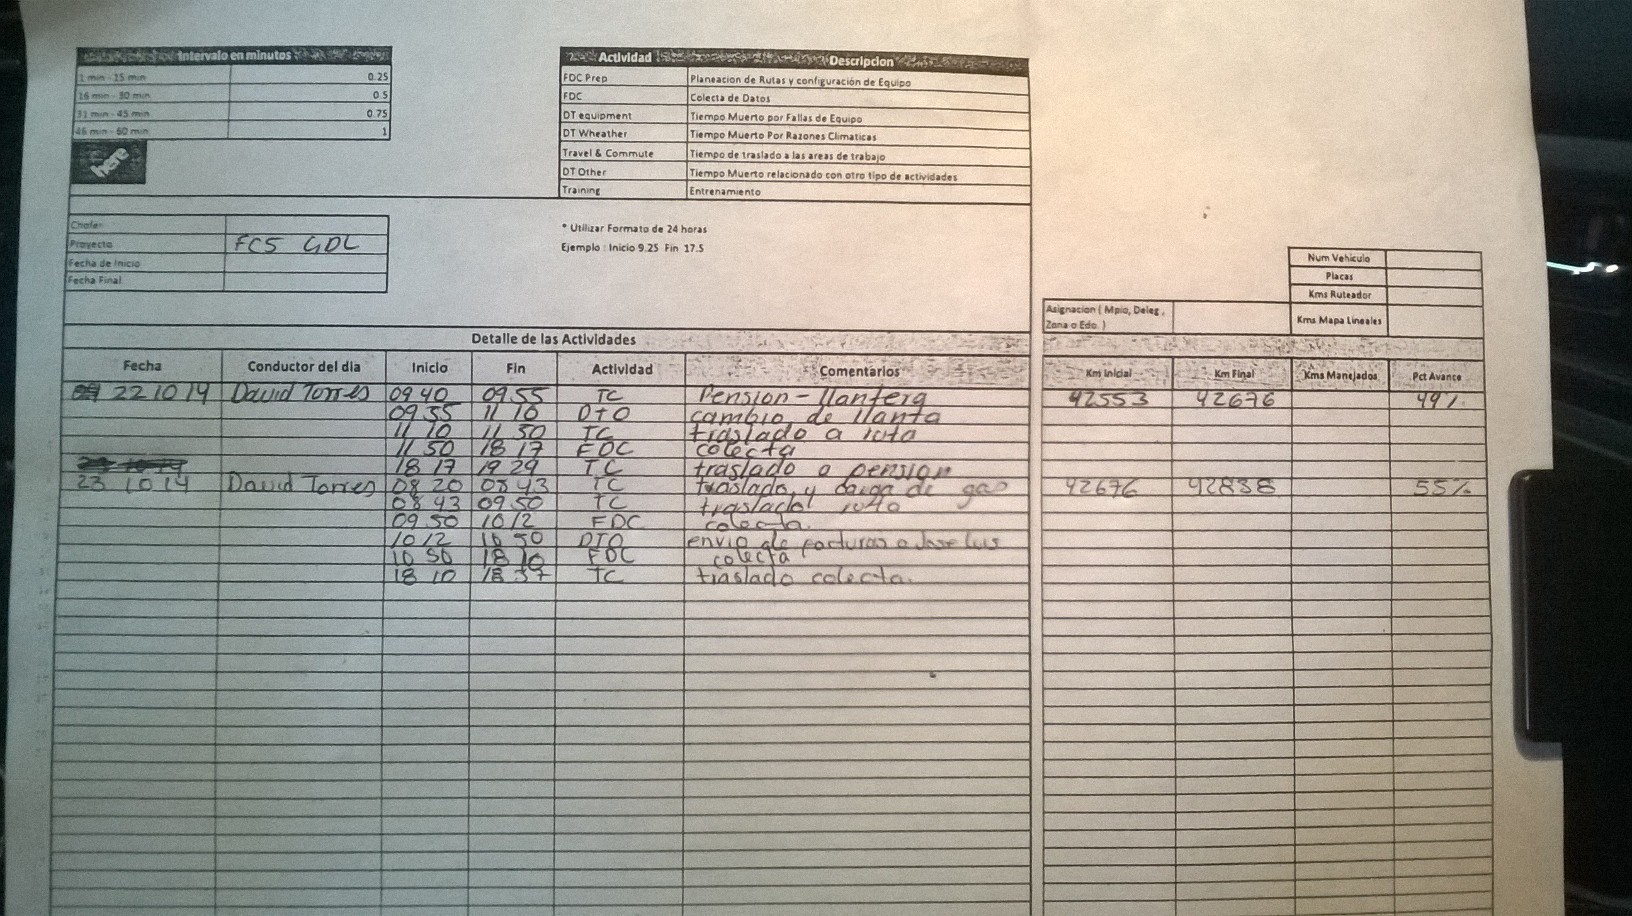 Intervalo en minutos
1 min - 15 min 0.25
16 min - 30 min 0.5
31 min - 45 min 0.75
46 min - 60 min 1
here
Actividad Descripcion
FDC Prep Planeacion de Rutas y configuración de Equipo
FDC Colecta de Datos
DT equipment Tiempo Muerto por Fallas de Equipo
DT Wheather Tiempo Muerto Por Razones Climaticas
Travel & Commute Tiempo de traslado a las areas de trabajo
DT Other Tiempo Muerto relacionado con otro tipo de actividades
Training Entrenamiento
Chofer
Proyecto FCS GDL
Fecha de Inicio
Fecha Final
* Utilizar Formato de 24 horas
Ejemplo : Inicio 9.25 Fin 17.5
Num Vehiculo
Placas
Kms Ruteador
Kms Mapa Lineales
Asignacion ( Mpio, Deleg ,
Zona o Edo. )
Detalle de las Actividades
Fecha Conductor del dia Inicio Fin Actividad Comentarios Km Inicial Km Final Kms Manejados Pct Avance
22 10 14 David Torres 09 40 09 55 TC Pension - llantera 42553 42676 49%
09 55 11 10 DTO cambio de llanta
11 10 11 50 TC traslado a ruta
11 50 18 17 FDC colecta
18 17 19 29 TC traslado a pension
23 10 14 David Torres 08 20 08 43 TC traslado y carga de gas 42676 42838 55%
08 43 09 50 TC traslado ruta
09 50 10 12 FDC colecta.
10 12 10 50 DTO envio de facturas a Jose Luis
10 50 18 10 FDC colecta
18 10 18 37 TC traslado colecta.